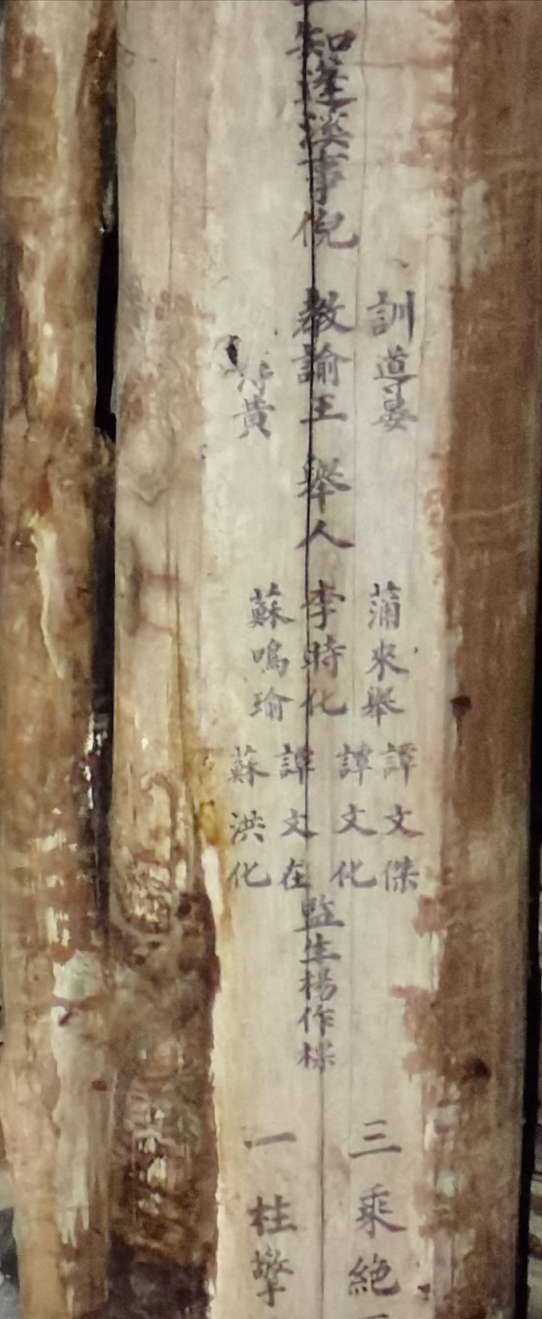 知蓬溪事倪
訓導晏
教諭王
黃
舉人
蒲來舉
李時化
蘇鳴瑜
譚文傑
譚文化
譚文在
蘇洪化
監生楊作樑
三乘絕
一柱擎